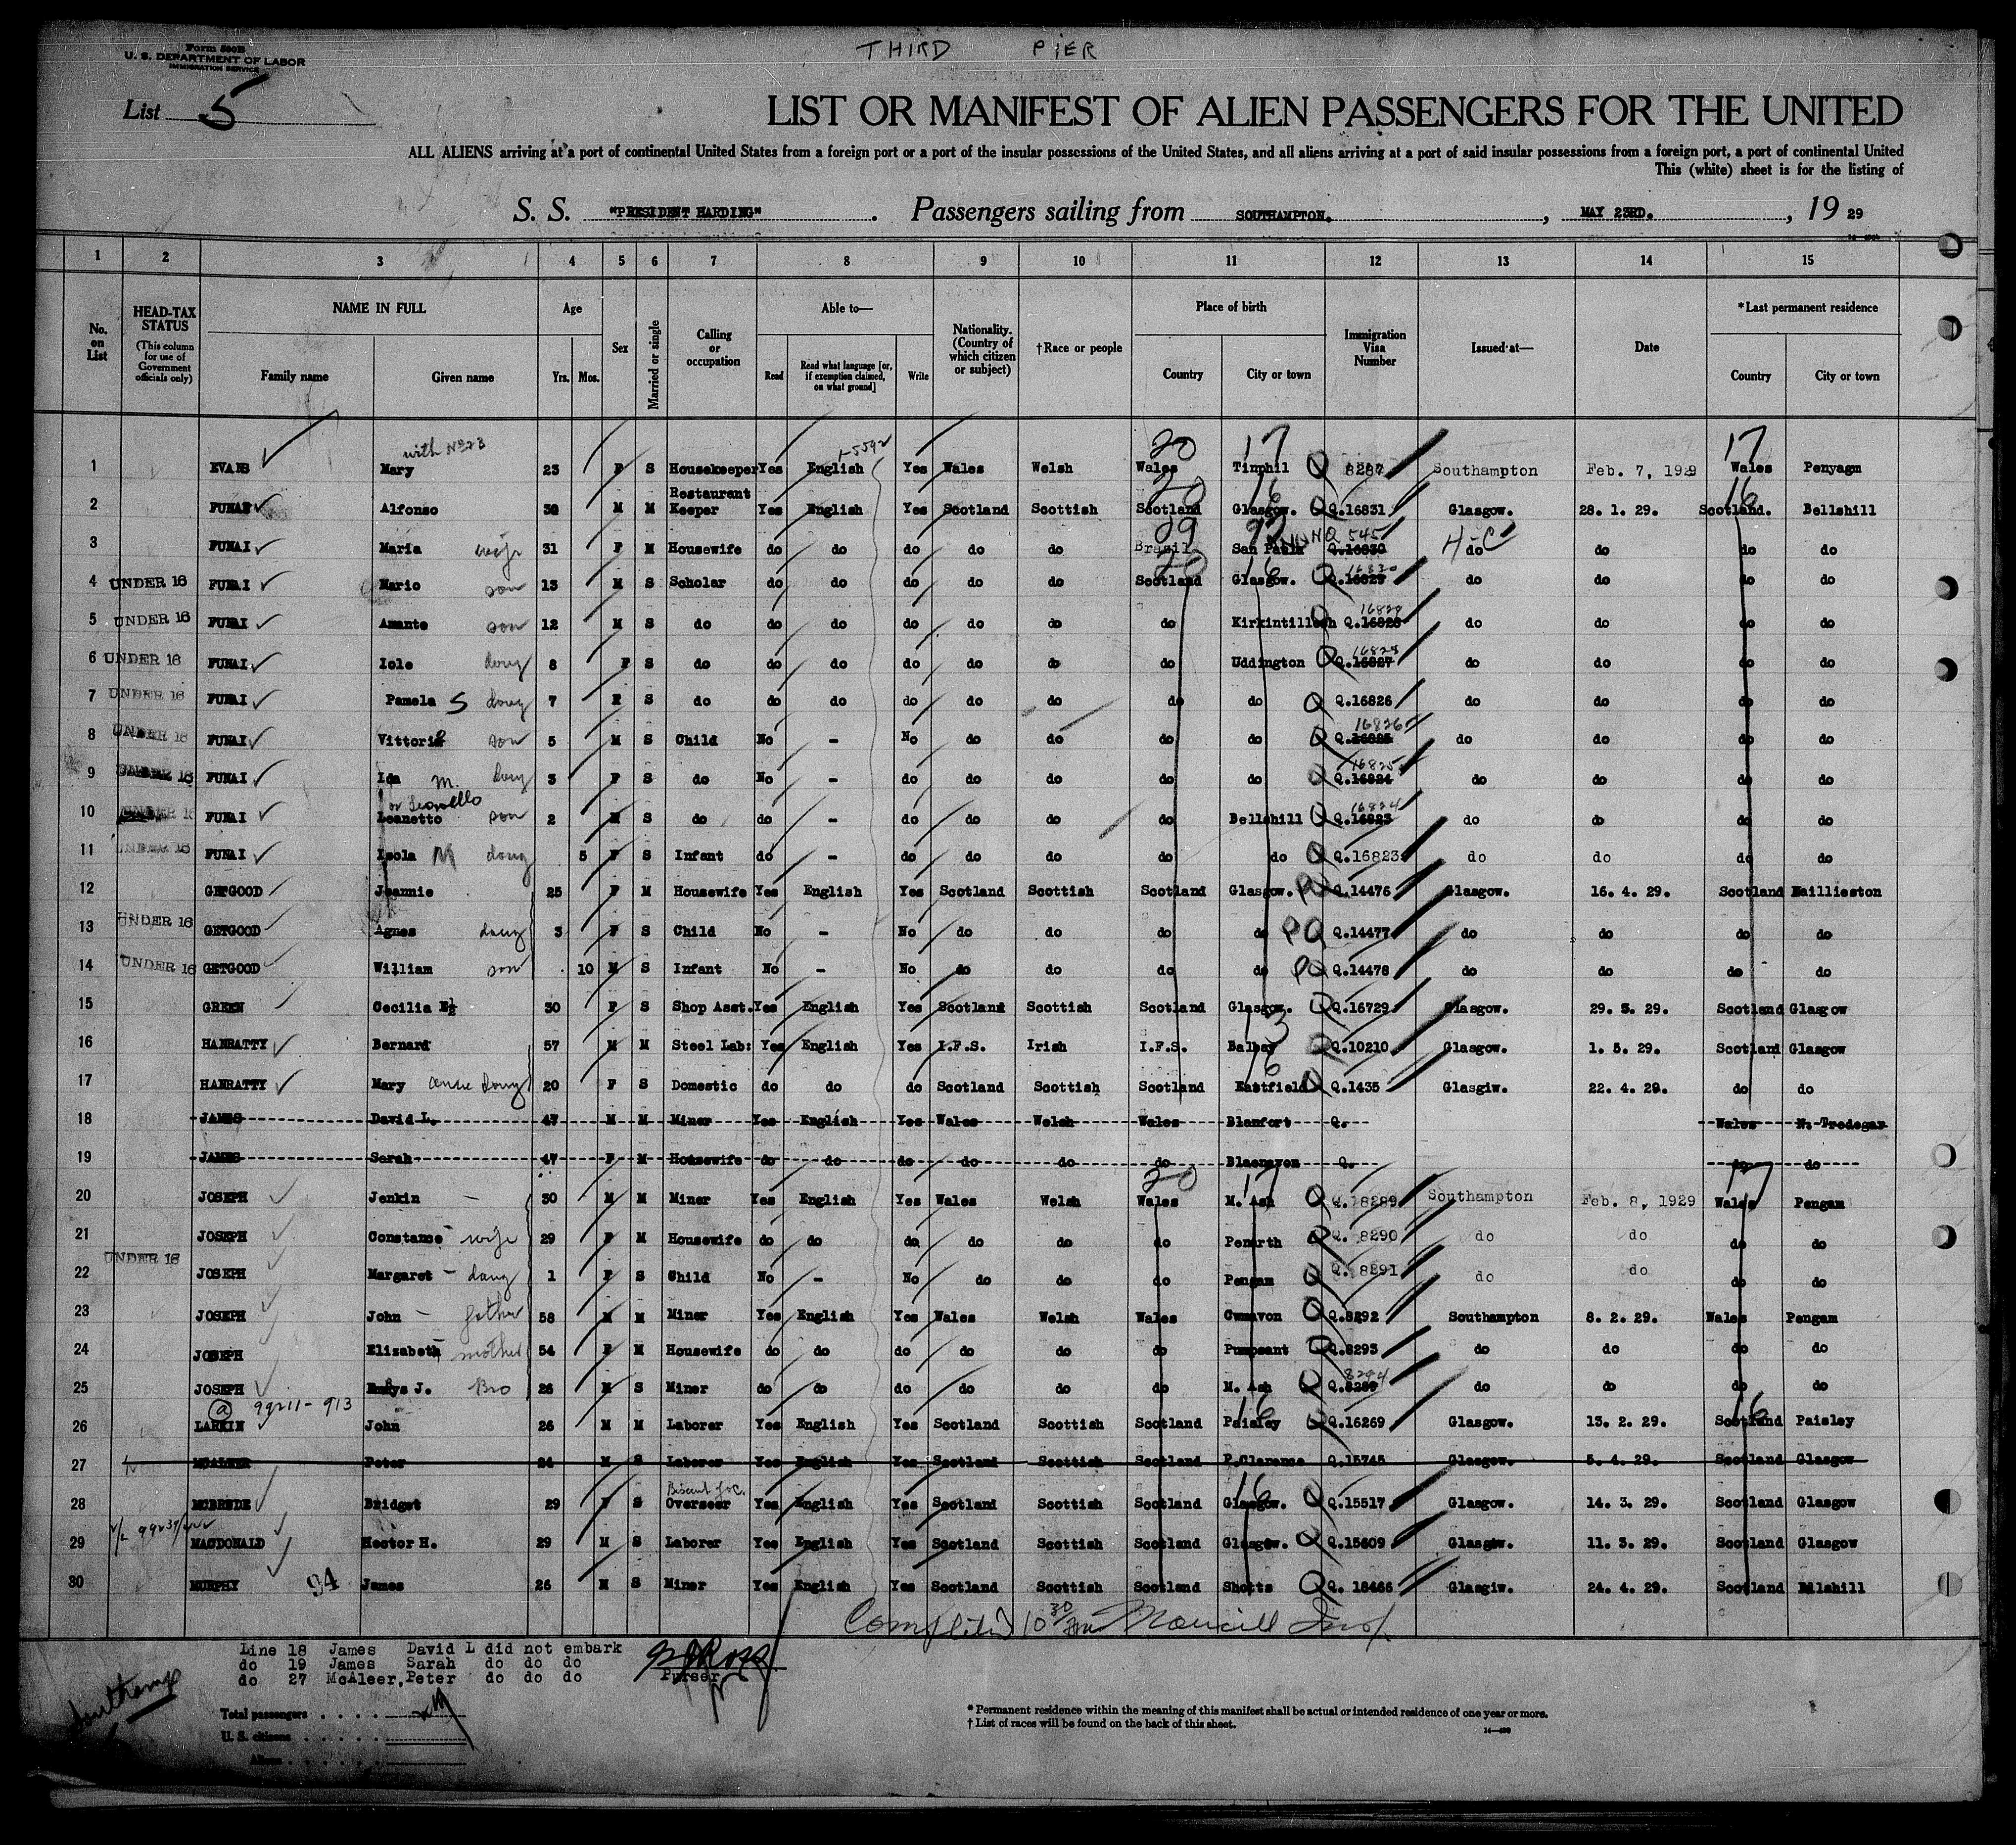 THIRD PIER
Form 500B
U. S. DEPARTMENT OF LABOR
IMMIGRATION SERVICE
List 5
LIST OR MANIFEST OF ALIEN PASSENGERS FOR THE UNITED
ALL ALIENS arriving at a port of continental United States from a foreign port or a port of the insular possessions of the United States, and all aliens arriving at a port of said insular possessions from a foreign port, a port of continental United
This (white) sheet is for the listing of
S. S. "PRESIDENT HARDING" . Passengers sailing from SOUTHAMPTON. , MAY 23RD. , 19 29
1 2 3 4 5 6 7 8 9 10 11 12 13 14 15
No. on List
HEAD-TAX STATUS (This column for use of Government officials only)
NAME IN FULL
Family name Given name
Age
Yrs. Mos.
Sex
Married or single
Calling or occupation
Able to—
Read Read what language [or, if exemption claimed, on what ground] Write
Nationality. (Country of which citizen or subject)
†Race or people
Place of birth
Country City or town
Immigration Visa Number
Issued at—
Date
*Last permanent residence
Country City or town
with No 23
20 17 17
1 EVANS Mary 23 F S Housekeeper Yes English Yes Wales Welsh Wales Tinphil Q 8287 Southampton Feb. 7, 1929 Wales Penyagm
20 16 16
2 FUNAI Alfonso 30 M M Restaurant Keeper Yes English Yes Scotland Scottish Scotland Glasgow. Q.16831 Glasgow. 28. 1. 29. Scotland. Bellshill
3 FUNAI Maria wife 31 F M Housewife do do do do do Brazil San Paulo NQ 545 Q.16830 do do do do
20 16
4 UNDER 16 FUNAI Mario son 13 M S Scholar do do do do do Scotland Glasgow. 16830 Q.16829 do do do do
5 UNDER 16 FUNAI Amante son 12 M S do do do do do do do Kirkintilloch 16829 Q.16828 do do do do
6 UNDER 16 FUNAI Iole daug 8 F S do do do do do do do Uddington 16828 Q.16827 do do do do
7 UNDER 16 FUNAI Pamela S daug 7 F S do do do do do do do do Q.16826 do do do do
8 UNDER 16 FUNAI Vittorio son 5 M S Child No - No do do do do 16826 Q.16825 do do do do
9 UNDER 16 FUNAI Ida M. daug 3 F S do No - do do do do do 16825 Q.16824 do do do do
10 UNDER 16 FUNAI Leanetto or Leonello son 2 M S do do - do do do do Bellshill 16824 Q.16823 do do do do
11 UNDER 16 FUNAI Isola M daug 5 F S Infant do - do do do do do Q.16823 do do do do
12 GETGOOD Jeannie 25 F M Housewife Yes English Yes Scotland Scottish Scotland Glasgow. Q.14476 Glasgow. 16. 4. 29. Scotland Baillieston
13 UNDER 16 GETGOOD Agnes daug 3 F S Child No - No do do do do Q.14477 do do do do
14 UNDER 16 GETGOOD William son 10 M S Infant No - No do do do do Q.14478 do do do do
15 GREEN Cecilia 30 F S Shop Asst. Yes English Yes Scotland Scottish Scotland Glasgow. Q.16729 Glasgow. 29. 3. 29. Scotland Glasgow
16 HANRATTY Bernard 57 M M Steel Lab: Yes English Yes I.F.S. Irish I.F.S. Balbay Q.10210 Glasgow. 1. 5. 29. Scotland Glasgow
17 HANRATTY Mary daug 20 F S Domestic do do do Scotland Scottish Scotland Eastfield Q.1435 Glasgiw. 22. 4. 29. do do
18 JAMES David L. 47 M M Miner Yes English Yes Wales Welsh Wales Blanfort Q. Wales N: Tredegar
19 JAMES Sarah 47 F M Housewife do do do do do do Blaenavon Q. do do
20 17 17
20 JOSEPH Jenkin 30 M M Miner Yes English Yes Wales Welsh Wales M. Ash Q. 8289 Southampton Feb. 8, 1929 Wales Pengam
21 JOSEPH Constance wife 29 F M Housewife do do do do do do Penarth Q. 8290 do do do do
22 UNDER 16 JOSEPH Margaret daug 1 F S Child No - No do do do Pengam Q. 8291 do do do do
23 JOSEPH John father 58 M M Miner Yes English Yes Wales Welsh Wales Cwmavon Q.8292 Southampton 8. 2. 29. Wales Pengam
24 JOSEPH Elizabeth mother 54 F M Housewife do do do do do do Pumpsant Q.8293 do do do do
25 JOSEPH Emrys J. Bro 26 M S Miner do do do do do do M. Ash 8294 do do do do
99211-913
26 LARKIN John 26 M M Laborer Yes English Yes Scotland Scottish Scotland Paisley Q.16269 Glasgow. 13. 2. 29. Scotland Paisley
27 MCALEER Peter 24 M S Laborer Yes English Yes Scotland Scottish Scotland P.Clarence Q.15745 Glasgow. 5. 4. 29. Scotland Glasgow
28 MCBRIDE Bridget 29 F S Overseer Yes English Yes Scotland Scottish Scotland Glasgow. Q.15517 Glasgow. 14. 3. 29. Scotland Glasgow
29 MACDONALD Hector H. 29 M S Laborer Yes English Yes Scotland Scottish Scotland Glasgow. Q.15609 Glasgiw. 11. 3. 29. Scotland Glasgow
30 MURPHY 94 James 26 M S Miner Yes English Yes Scotland Scottish Scotland Shotts Q. 18466 Glasgiw. 24. 4. 29. Scotland Bilshill
Completed 10 30
Line 18 James David L did not embark
do 19 James Sarah do do do
do 27 McAleer, Peter do do do
Purser
Southamp
Total passengers
U. S. citizens
Aliens
* Permanent residence within the meaning of this manifest shall be actual or intended residence of one year or more.
† List of races will be found on the back of this sheet.